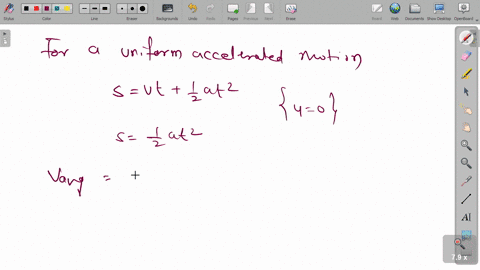 Stylus Color Board Backgrounds Undo Redo Pages Previous Next Erase Board Web Documents Show Desktop OpenBoard
For a uniform accelerated motion
s = ut + 1/2 at²
{u=0}
s = 1/2 at²
Vavg =
7.9 x